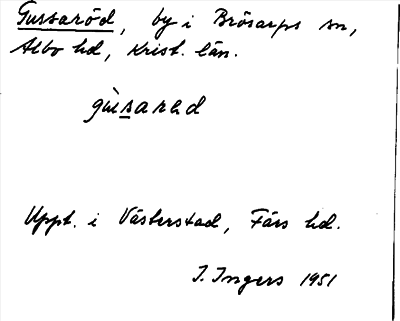 Gussaröd, by i Brösarps sn,
Albo hd, Krist. län.
gùsarɘd
Uppt. i Västerstad, Färs hd.
I. Ingers 1951